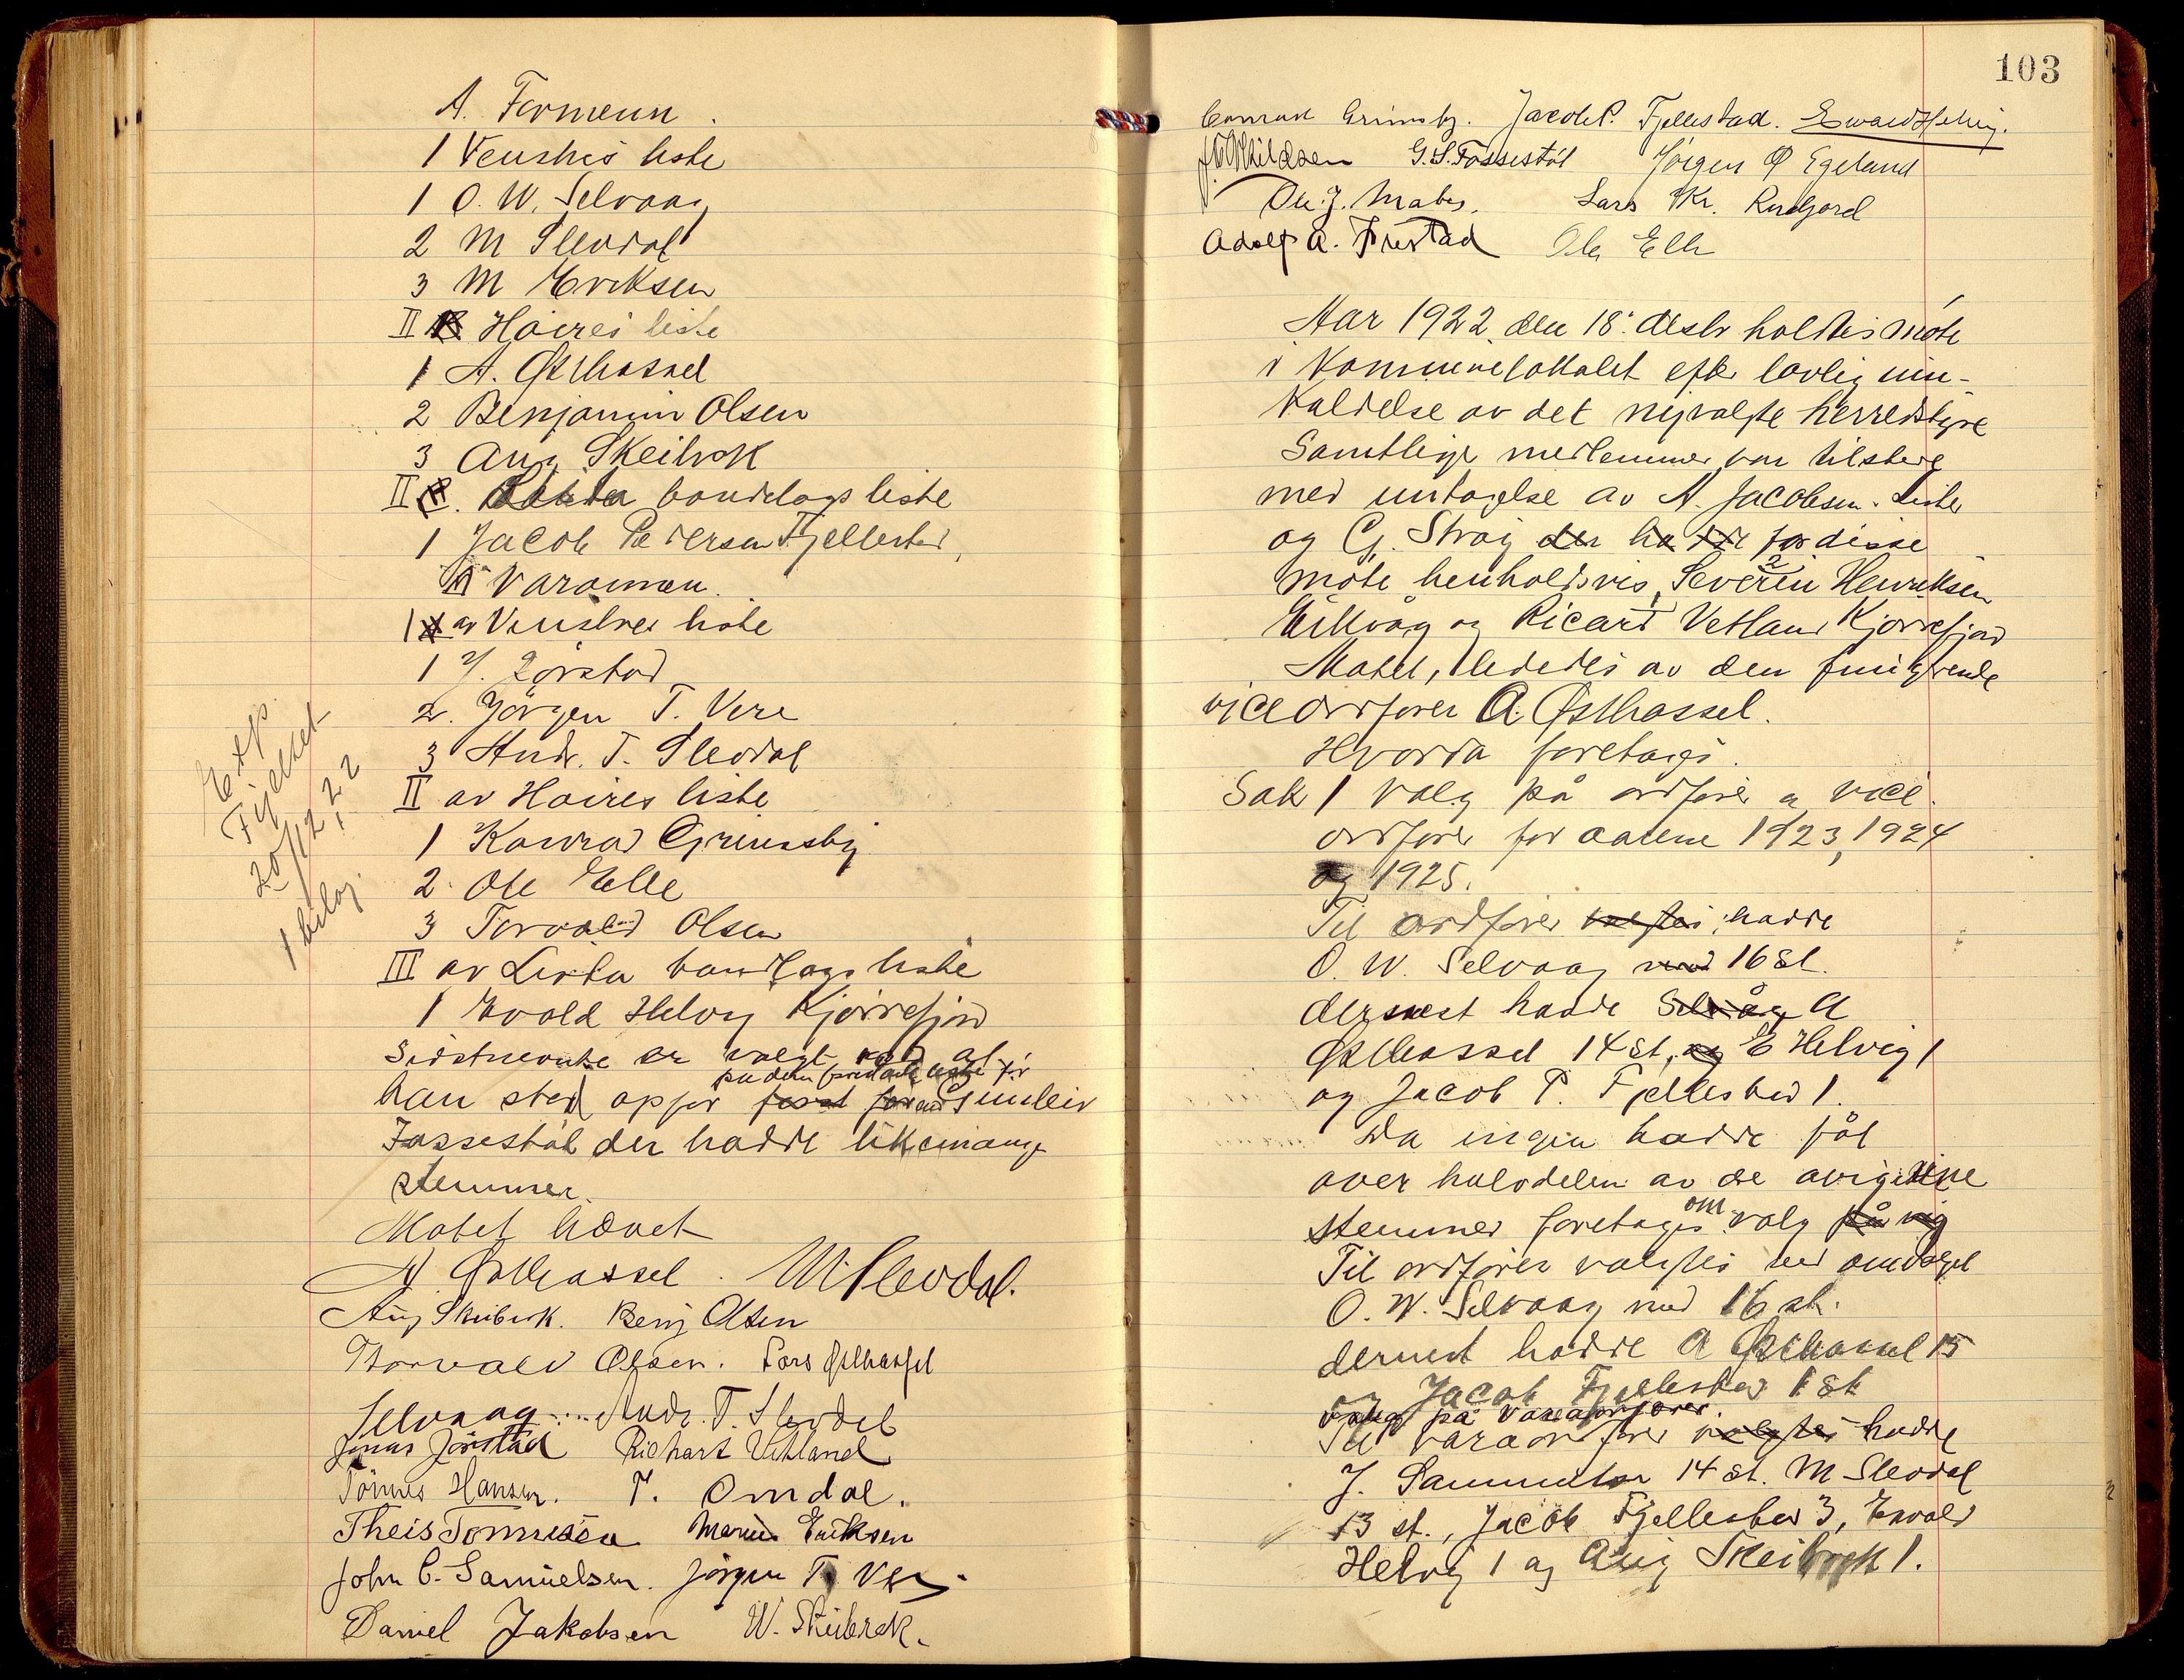 A. Formenn.
1 Venstres liste
1 O. W. Selvaag
2 M Slevdal
3 M Eriksen
II Høires liste
1 A. Østhassel
2 Benjamin Olsen
3 Aug Skeibrok
II bondelags liste
1 Jacob Pedersen Fjellestad,
Varamæn.
1 av Venstres liste
1 J. Jørstad
2. Jørgen T. Vere
3 Andr. T. Slevdal
II av Høires liste
1 Konrad Grimsby
2. Ole Elle
3 Torvald Olsen
III av Lista bondelags liste
1 Evald Helvig Kjørrefjord
Sidstnevnte er valgt ved at
på den liste før
han står opfør Gunleiv
Fossestøl der hadde likemange
stemmer.
Møtet hævet
Exp.
20/12 22
1 bilag.
A. Østhassel. M. Slevdal.
Aug Skeibrok. Benj Olsen
Thorvald Olsen. Lars Østhassel
Selvaag Andr. T. Slevdal
Jonas Jörstad Richart Vetland
Tönnes Hansen. T. Omdal.
Theis Tönnessen Marius Eriksen
John C. Samuelsen. Jörgen T. Vere
Daniel Jakobsen W. Skeibrok.
103
Conrad Grimsby. Jacob P. Fjellestad. Ewald Helvig.
G. S. Fossestøl Jørgen Ø Egeland
Ole J. Lars Kr. Rudjord
Adolf A. Frestad Ole Elle
Aar 1922 den 18. desbr holdtes møte
i Kommunelokalet efter lovlig inn-
kaldelse av det nyvalgte herredstyre
Samtlige medlemmer var tilstede
med untagelse av A. Jacobsen. Lister
og G. Stray der hadde for disse
møte henholdsvis Severin Henriksen
Eikvåg og Ricard Vetland Kjørrefjord
Møtet, lededes av den fungerende
viceordfører A. Østhassel.
Hvorda foretages.
Sak 1 Valg på ordfører og vice
ordfører for aarene 1923, 1924
og 1925.
Til ordfører valgtes hadde
O. W. Selvaag med 16 St.
dernest hadde Selvåg A
Østhassel 14 st, og E Helvig 1
og Jacob P. Fjellestad 1.
Da ingen hadde fåt
over halvdelen av de avgivne
stemmer foretages om valg på ny
Til ordfører valgtes ved omvalget
O. W. Selvaag med 16 st.
dernest hadde A Østhassel 15
og Jacob Fjellestad 1 St
valg på varaordfører
Til varaordfører valgtes hadde
J. Samuelsen 14 st. M Slevdal
13 st., Jacob Fjellestad 3, Evald
Helvig 1 og Aug Skeibrok 1.